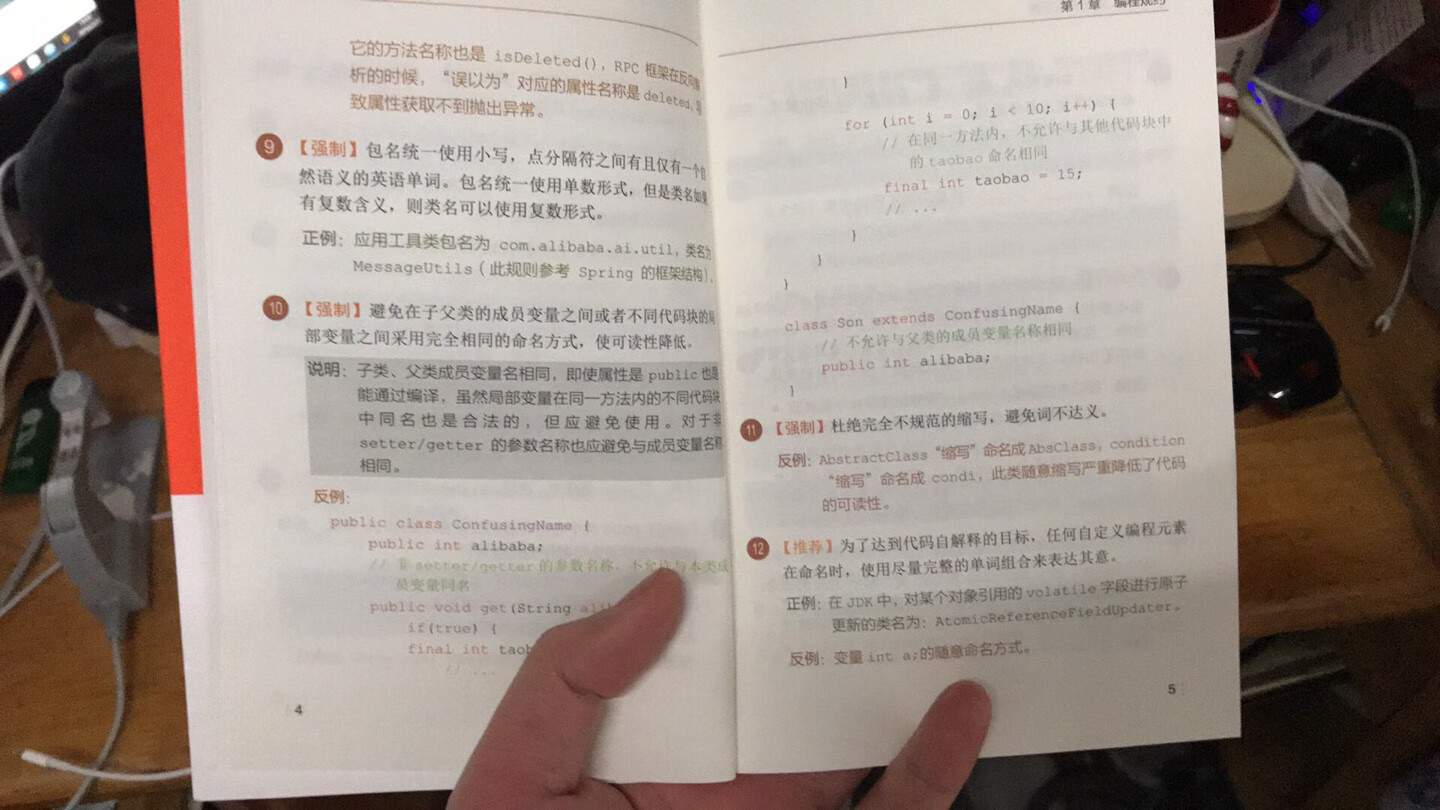 它的方法名称也是 isDeleted()，RPC 框架在反向
析的时候，“误以为”对应的属性名称是 deleted，
致属性获取不到抛出异常。
9 【强制】包名统一使用小写，点分隔符之间有且仅有一个自
然语义的英语单词。包名统一使用单数形式，但是类名如果
有复数含义，则类名可以使用复数形式。
正例：应用工具类包名为 com.alibaba.ai.util，类名为
MessageUtils（此规则参考 Spring 的框架结构）。
10 【强制】避免在子父类的成员变量之间或者不同代码块的局
部变量之间采用完全相同的命名方式，使可读性降低。
说明：子类、父类成员变量名相同，即使属性是 public 也是
能通过编译，虽然局部变量在同一方法内的不同代码块
中同名也是合法的，但应避免使用。对于非
setter/getter 的参数名称也应避免与成员变量名称
相同。
反例：
public class ConfusingName {
public int alibaba;
// 非 setter/getter 的参数名称，不允许与本类成
员变量同名
public void get(String ali
if(true) {
final int taob
// ...
4
第 1 章 编程规约
}
for (int i = 0; i < 10; i++) {
// 在同一方法内，不允许与其他代码块中
的 taobao 命名相同
final int taobao = 15;
// ...
}
}
}
class Son extends ConfusingName {
// 不允许与父类的成员变量名称相同
public int alibaba;
}
11 【强制】杜绝完全不规范的缩写，避免词不达义。
反例：AbstractClass“缩写”命名成 AbsClass，condition
“缩写”命名成 condi，此类随意缩写严重降低了代码
的可读性。
12 【推荐】为了达到代码自解释的目标，任何自定义编程元素
在命名时，使用尽量完整的单词组合来表达其意。
正例：在 JDK 中，对某个对象引用的 volatile 字段进行原子
更新的类名为：AtomicReferenceFieldUpdater。
反例：变量 int a;的随意命名方式。
5